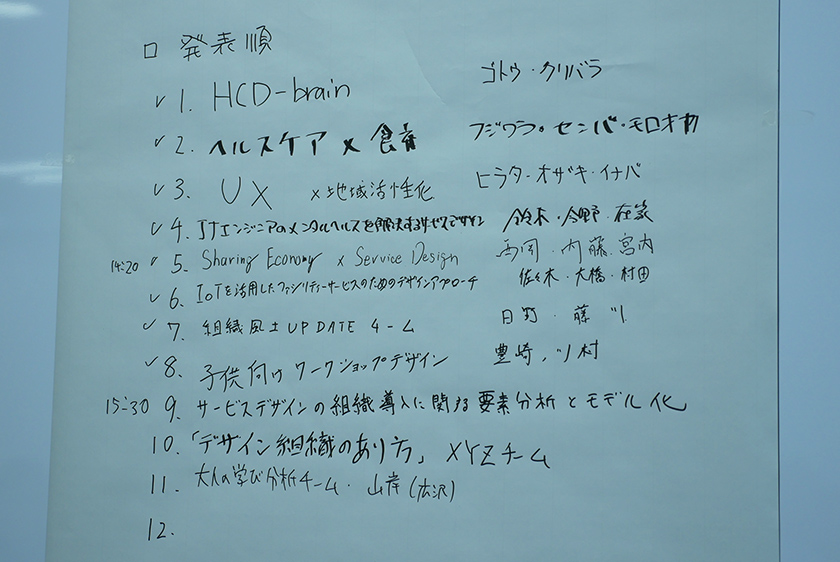 □ 発表順
✓ 1. HCD-brain ゴトウ・クリバラ
✓ 2. ヘルスケア × 食育 フジワラ・センバ・モロオカ
✓ 3. UX ×地域活性化 ヒラタ・オザキ・イナバ
✓ 4. ITエンジニアのメンタルヘルスを解決するサービスデザイン 鈴木・今野・在家
14:20 ✓ 5. Sharing Economy × Service Design 西岡・内藤・宮内
✓ 6. IoTを活用したファシリティーサービスのためのデザインアプローチ 佐々木・大橋・村田
✓ 7. 組織風土UPDATEチーム 日野・藤川
✓ 8. 子供向け ワークショップデザイン 豊崎、川村
15:30 9. サービスデザインの組織導入に関する要素分析とモデル化
10. 「デザイン組織のあり方」 XYZチーム
11. 大人の学び分析チーム・山岸(広沢)
12.